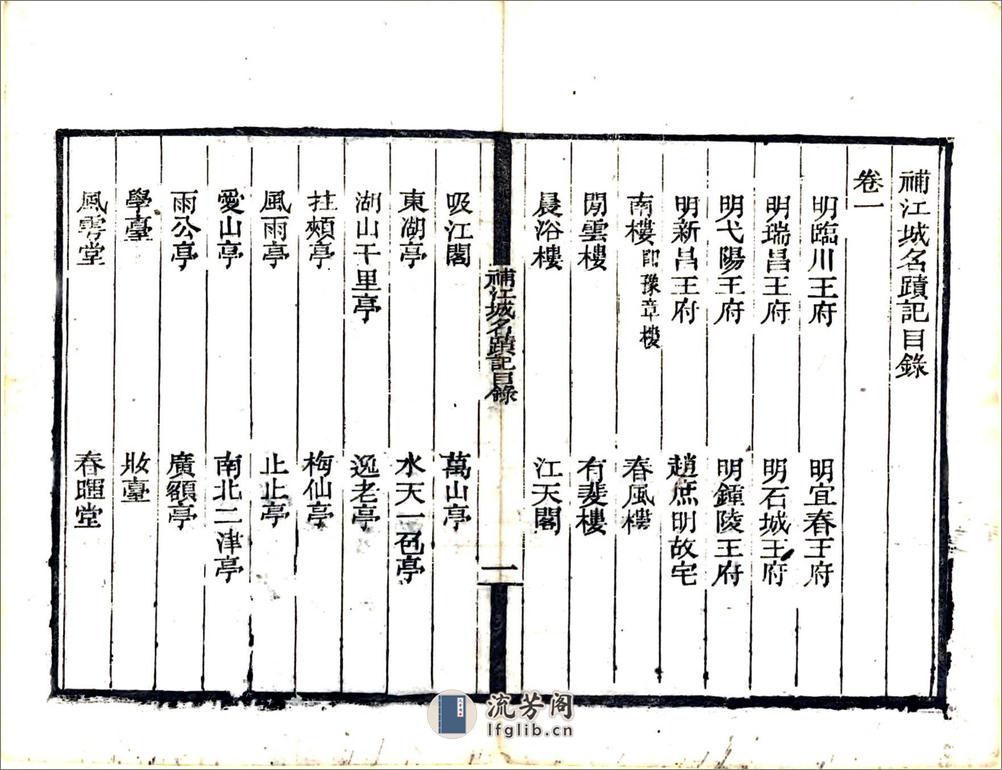 補江城名蹟記目錄
卷一
明臨川王府　明宜春王府
明瑞昌王府　明石城王府
明弋陽王府　明鍾陵王府
明新昌王府　趙庶明故宅
南樓即豫章樓　春風樓
閒雲樓　有斐樓
晨浴樓　江天閣
補江城名蹟記目錄　一
吸江閣　萬山亭
東湖亭　水天一色亭
湖山千里亭　逸老亭
拄頰亭　梅仙亭
風雨亭　止止亭
愛山亭　南北二津亭
雨公亭　廣額亭
學臺　妝臺
風雩堂　春暉堂
流芳阁
lfglib.cn